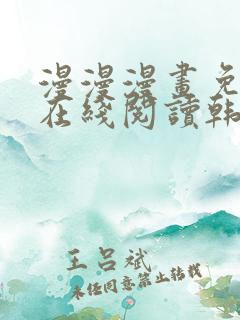 漫漫漫畫免
在綫閱讀韩
王呂斌
未经同意禁止转载